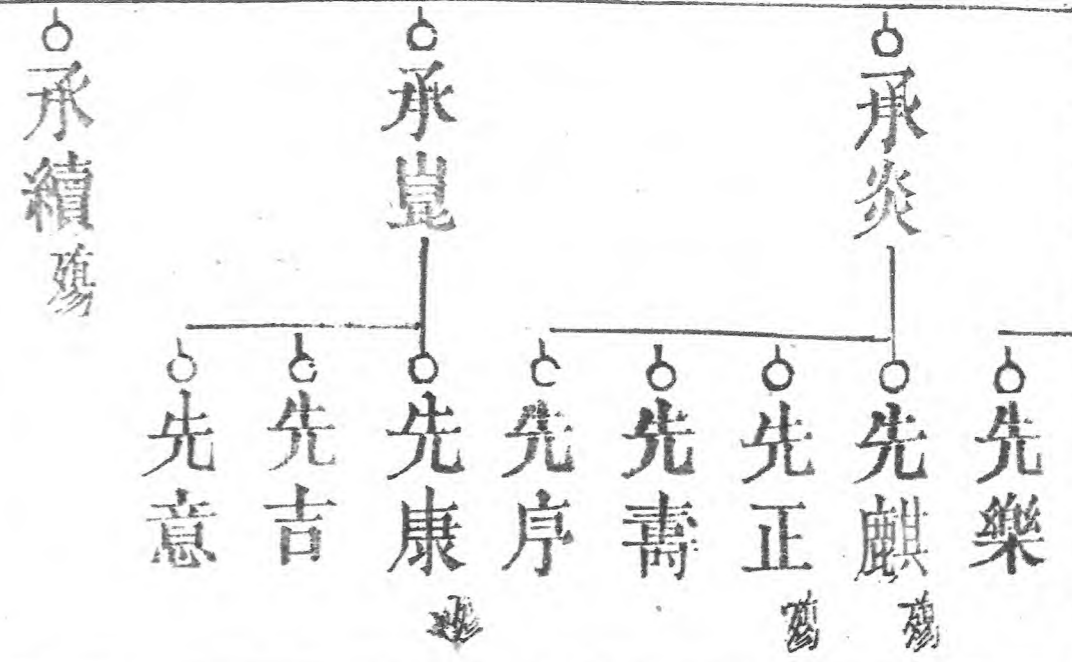 承炎
承崑
承續 殤
先樂
先麒 殤
先正 殤
先壽
先序
先康
先吉
先意